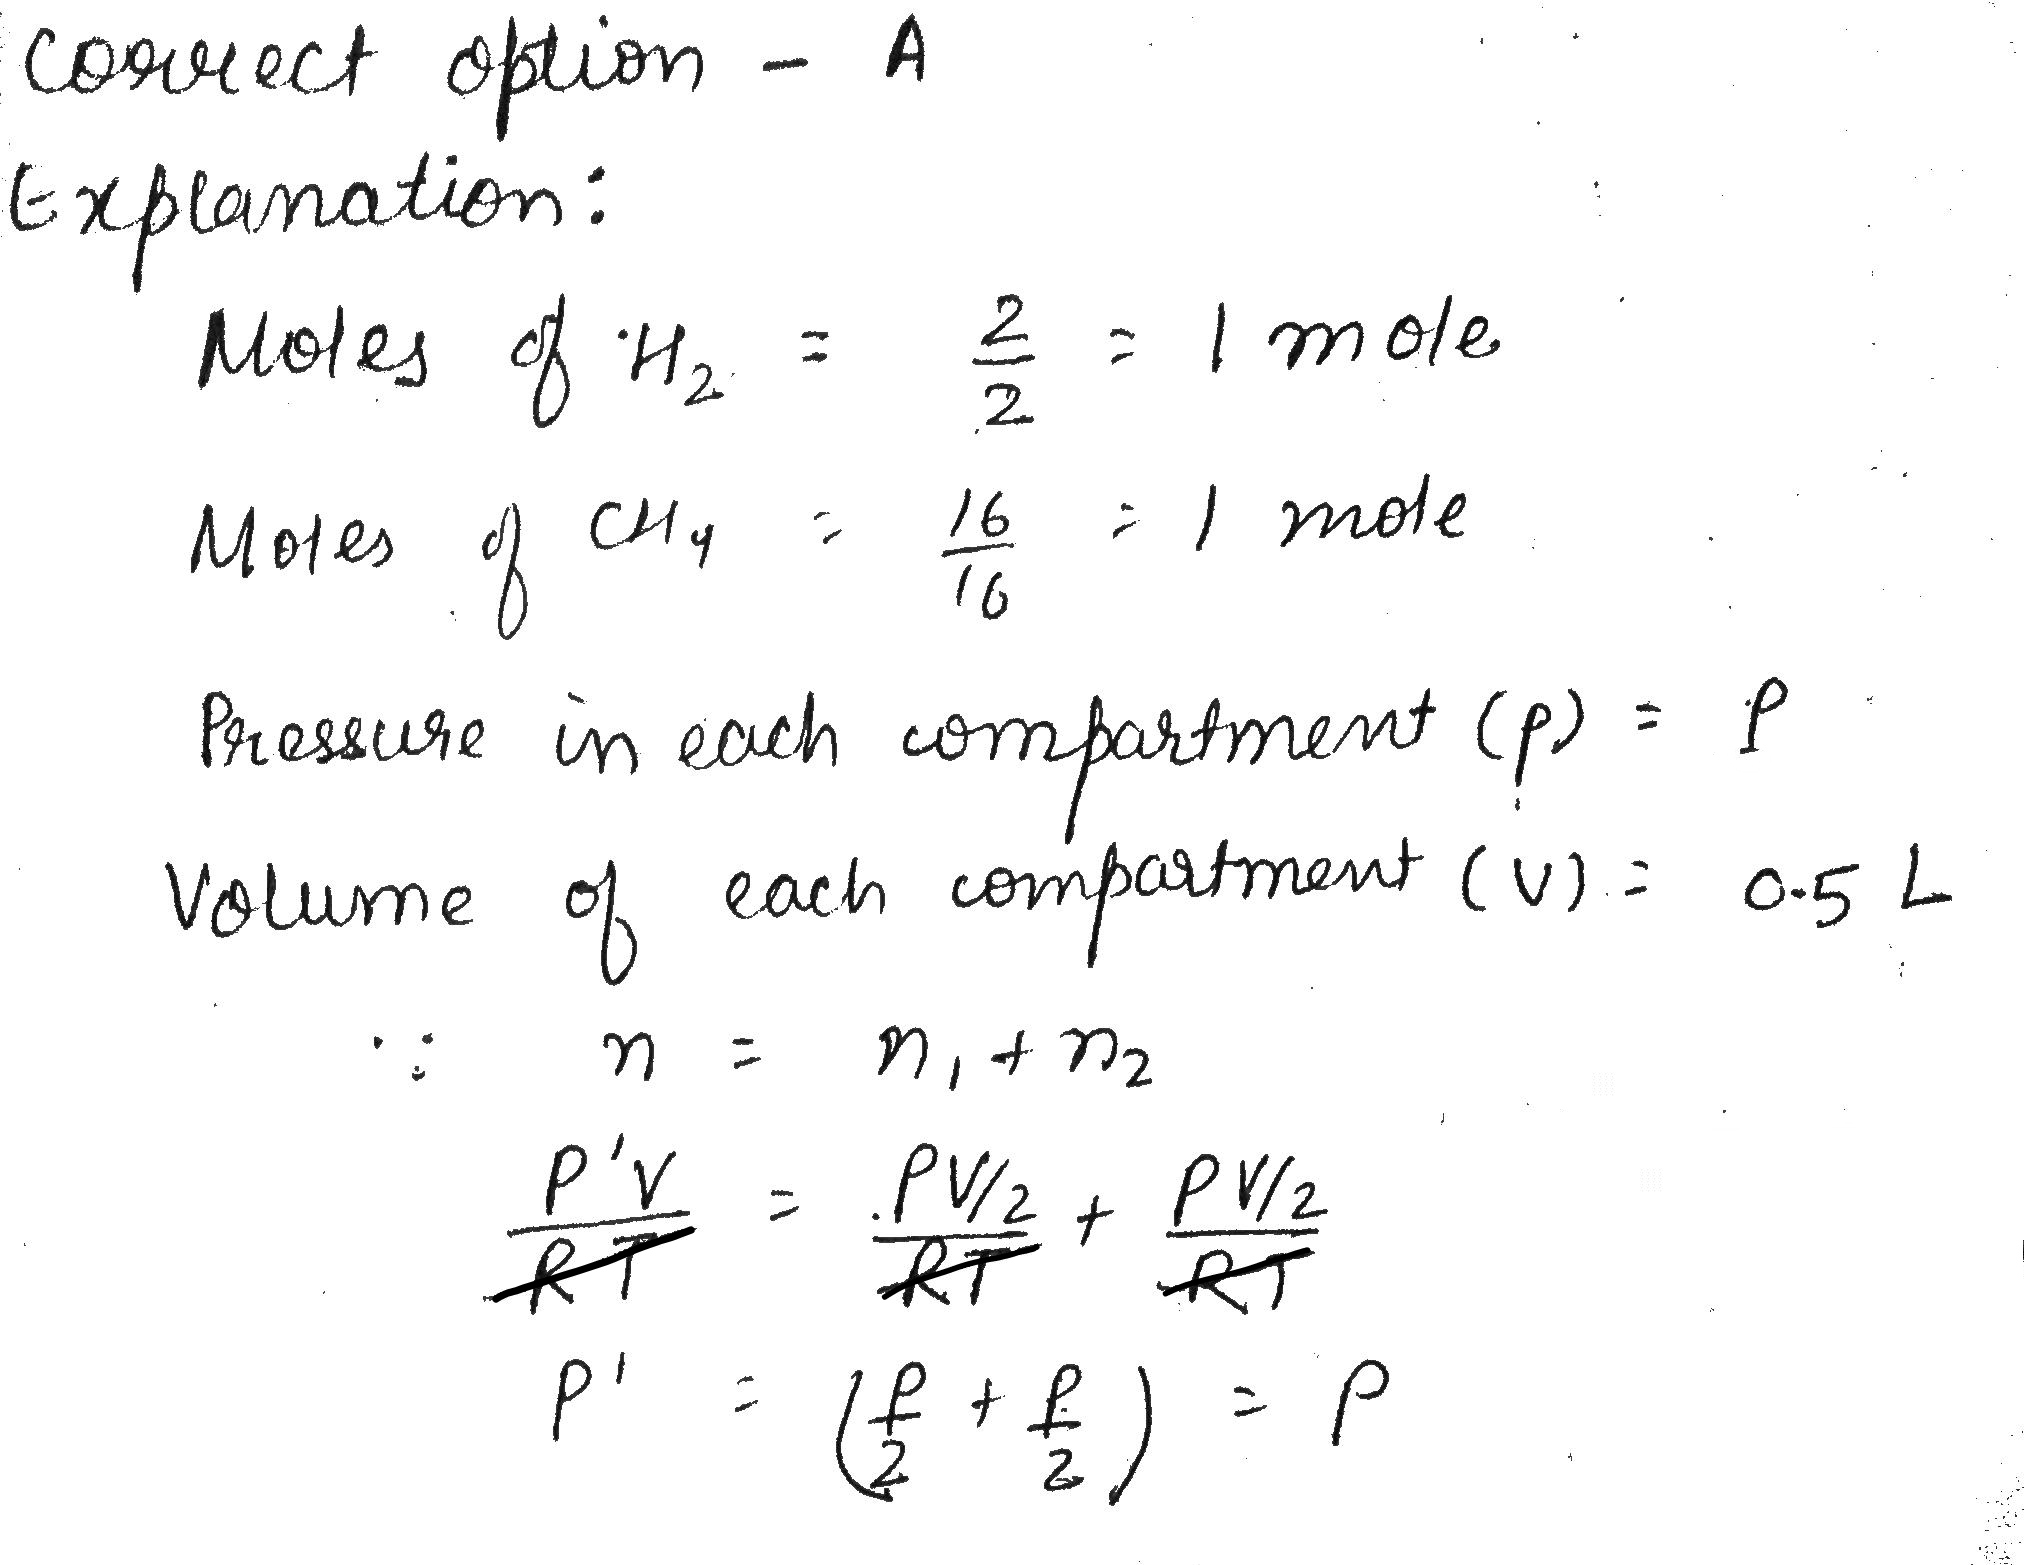 Correct option - A
Explanation:
Moles of H₂ = 2/2 = 1 mole
Moles of CH₄ = 16/16 = 1 mole
Pressure in each compartment (p) = P
Volume of each compartment (V) = 0.5 L
∵ n = n₁ + n₂
P'V/RT = PV/2/RT + PV/2/RT
P' = (P/2 + P/2) = P